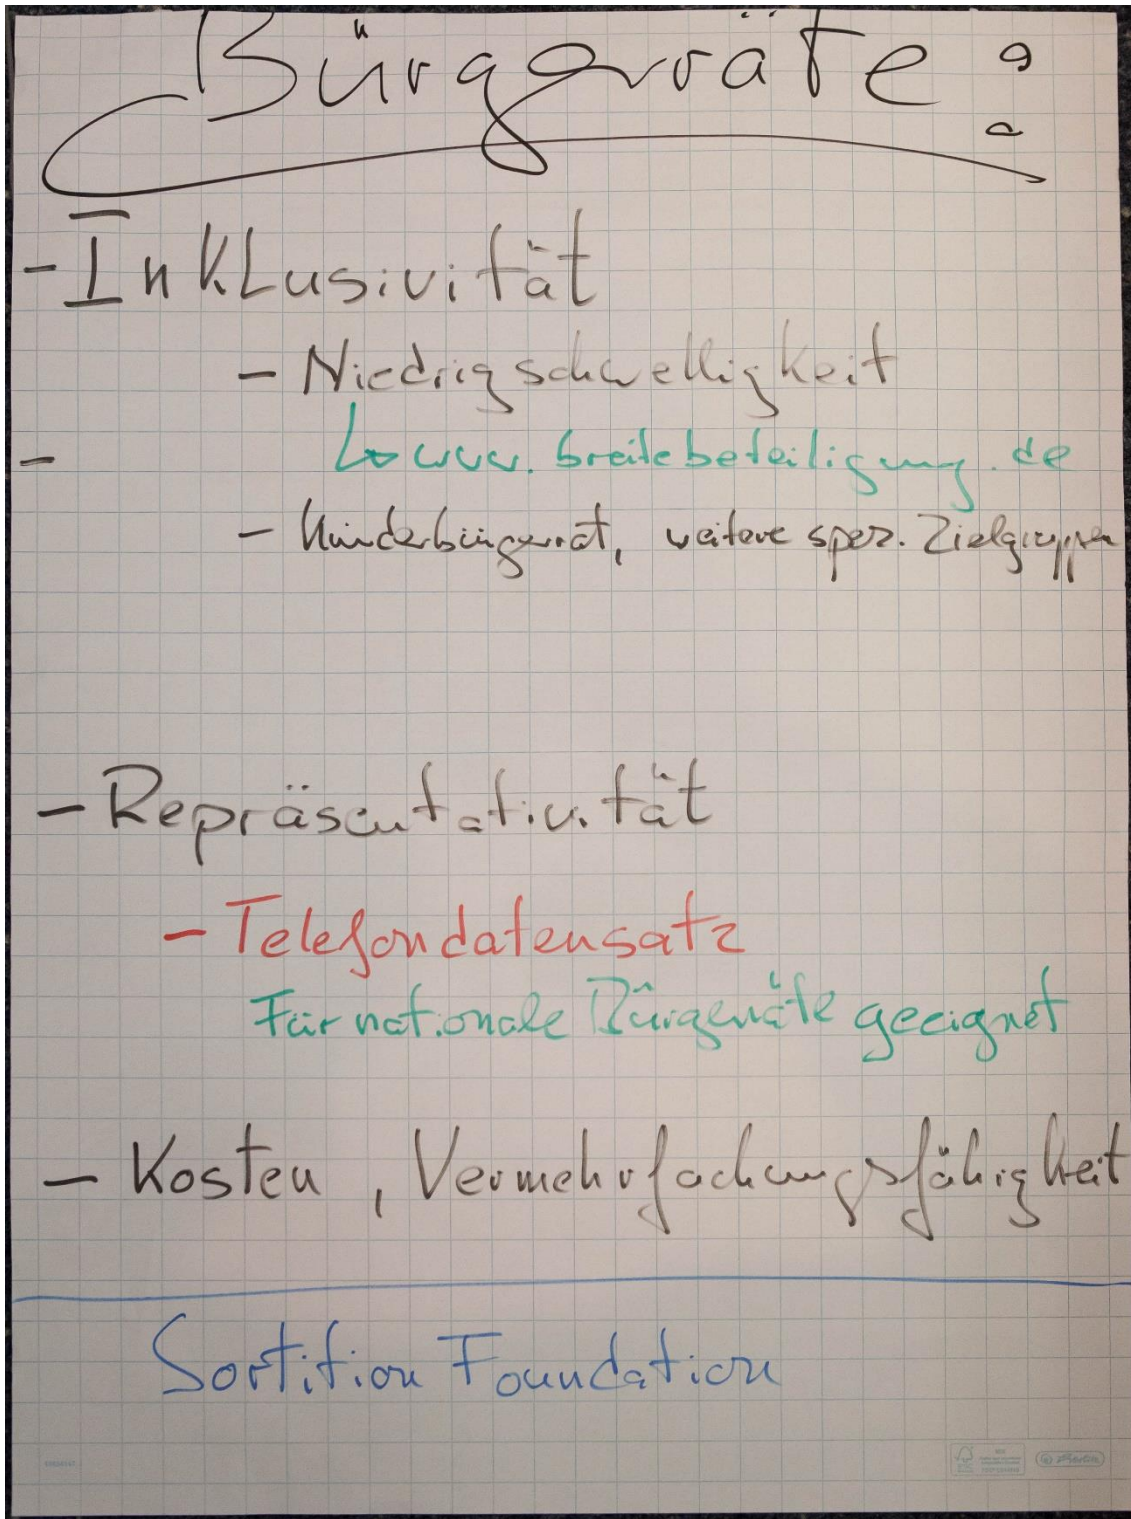 Bürgerräte:
- Inklusivität
- Niedrigschwelligkeit
-
↳ www.breitebeteiligung.de
- Kinderbürgerrat, weitere spez. Zielgruppen
- Repräsentativität
- Telefondatensatz
Für nationale Bürgerräte geeignet
- Kosten, Vermehrfachungsfähigkeit
Sortition Foundation